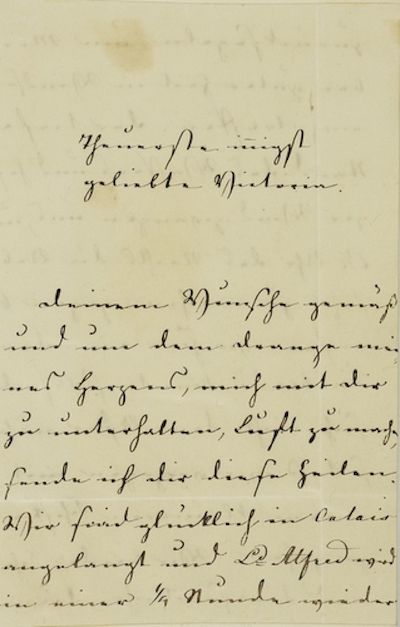 Theuerste innigst
geliebte Victoria.
Deinem Wunsche gemäß
und um dem Drange mei-
nes Herzens, mich mit Dir
zu unterhalten, Luft zu machen,
sende ich dir diese Zeilen.
Wir sind glücklich in Calais
angelangt und Ld Alfred wird
in einer 1/4 Stunde wieder